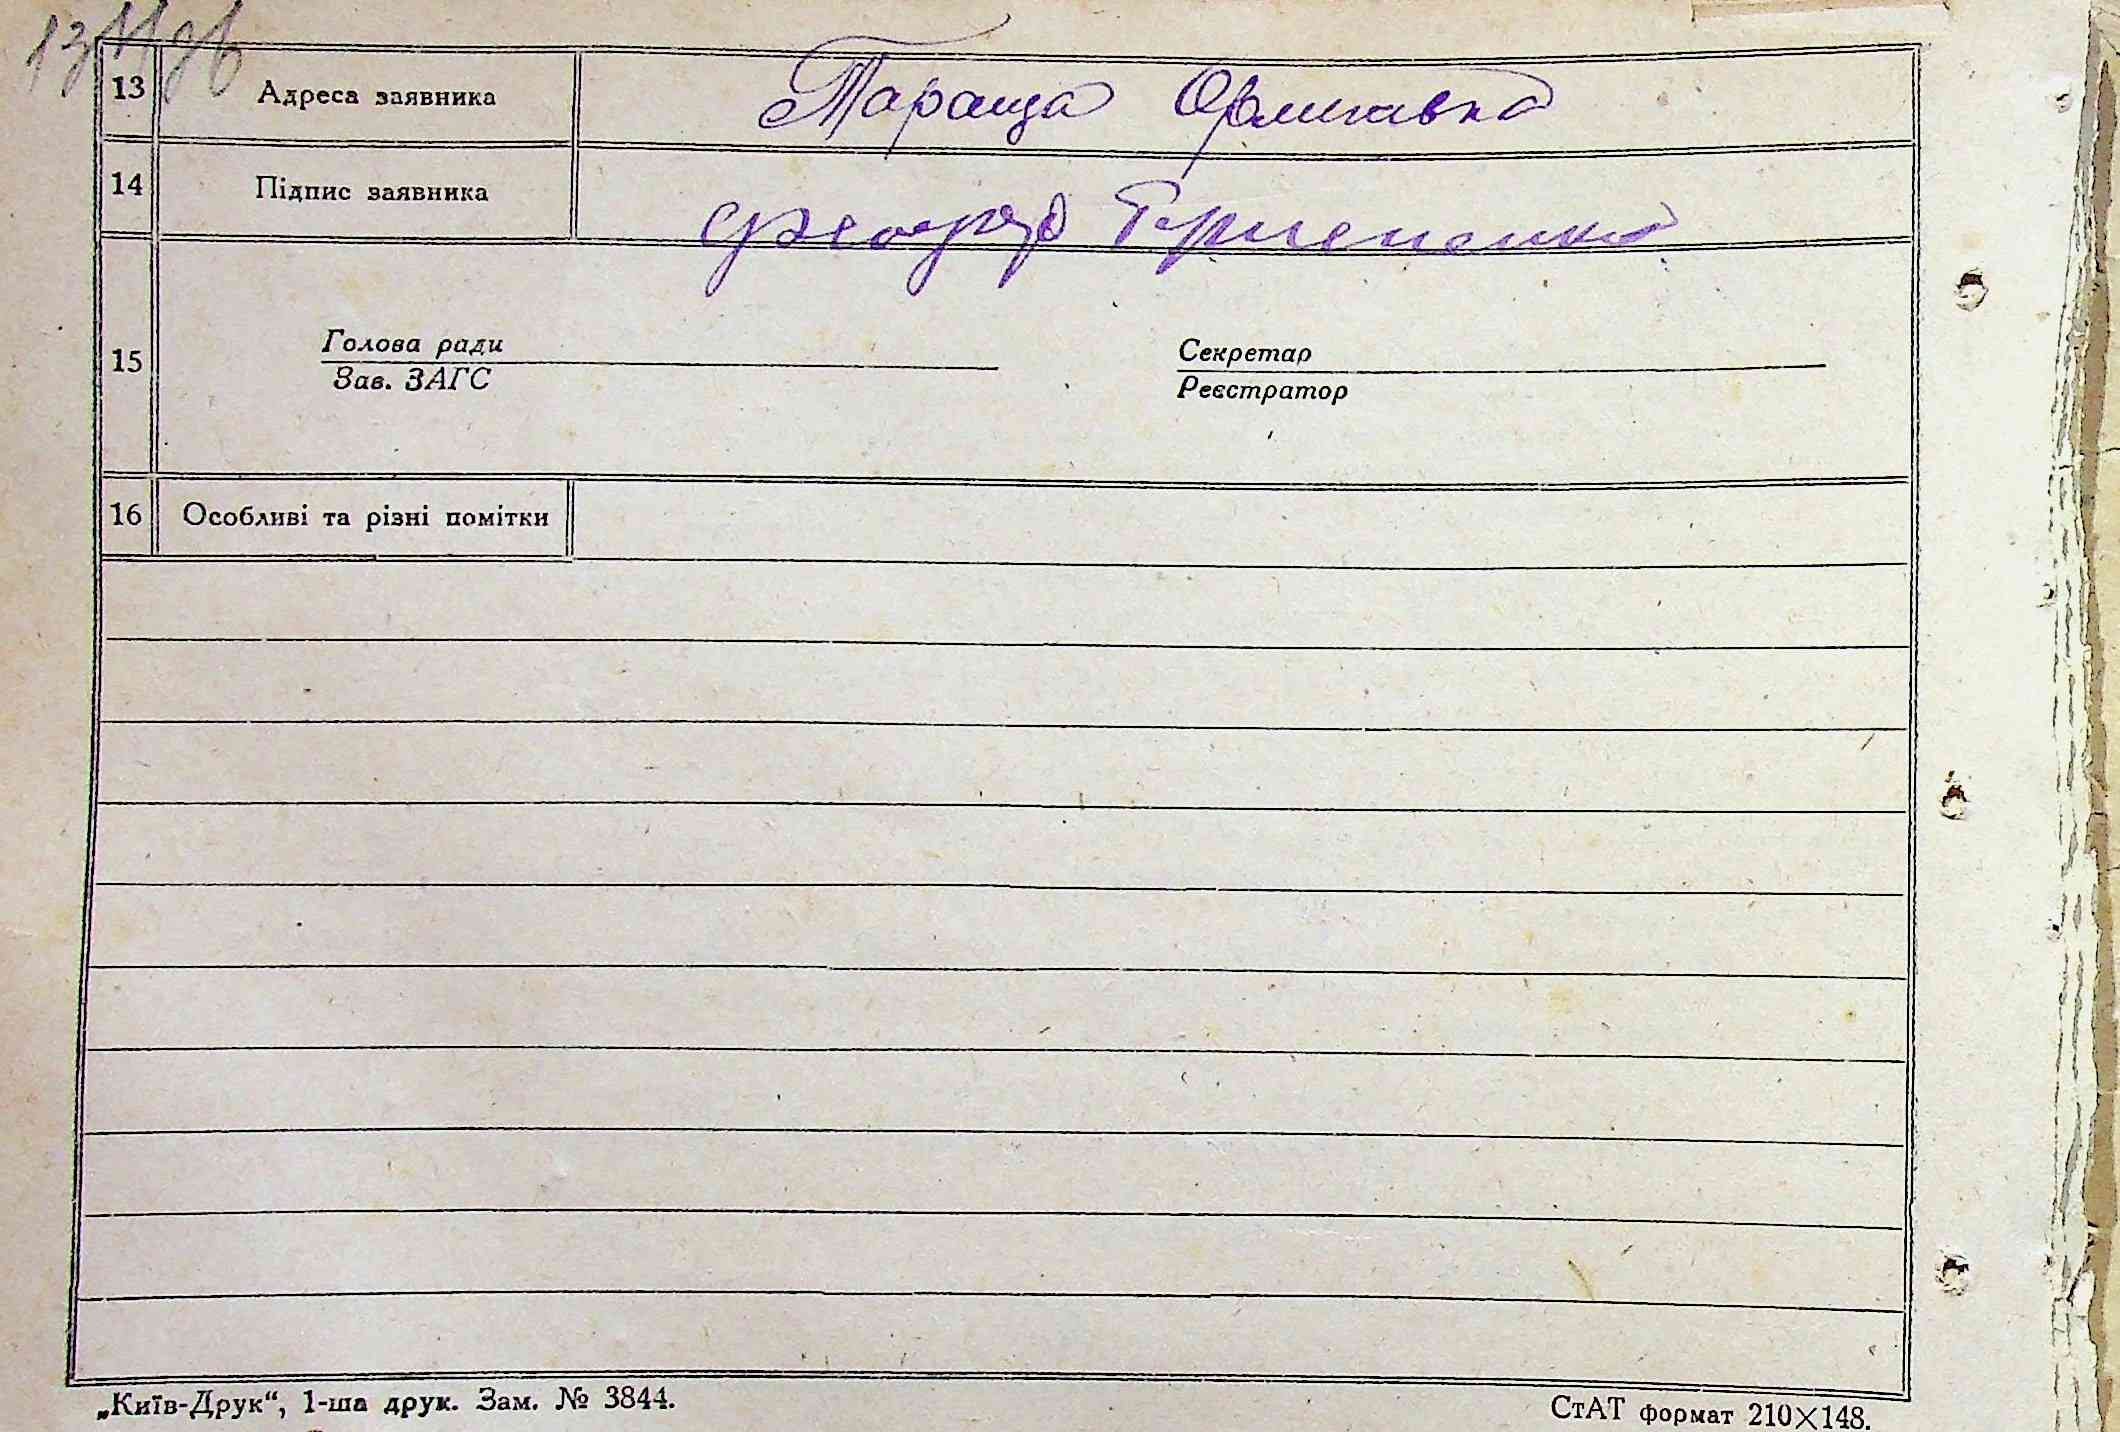 13 Адреса заявника Тараща
14 Підпис заявника
15 Голова ради Секретар
Зав. ЗАГС Реєстратор
16 Особливі та різні помітки
„Київ-Друк“, 1-ша друк. Зам. № 3844. СтАТ формат 210×148.